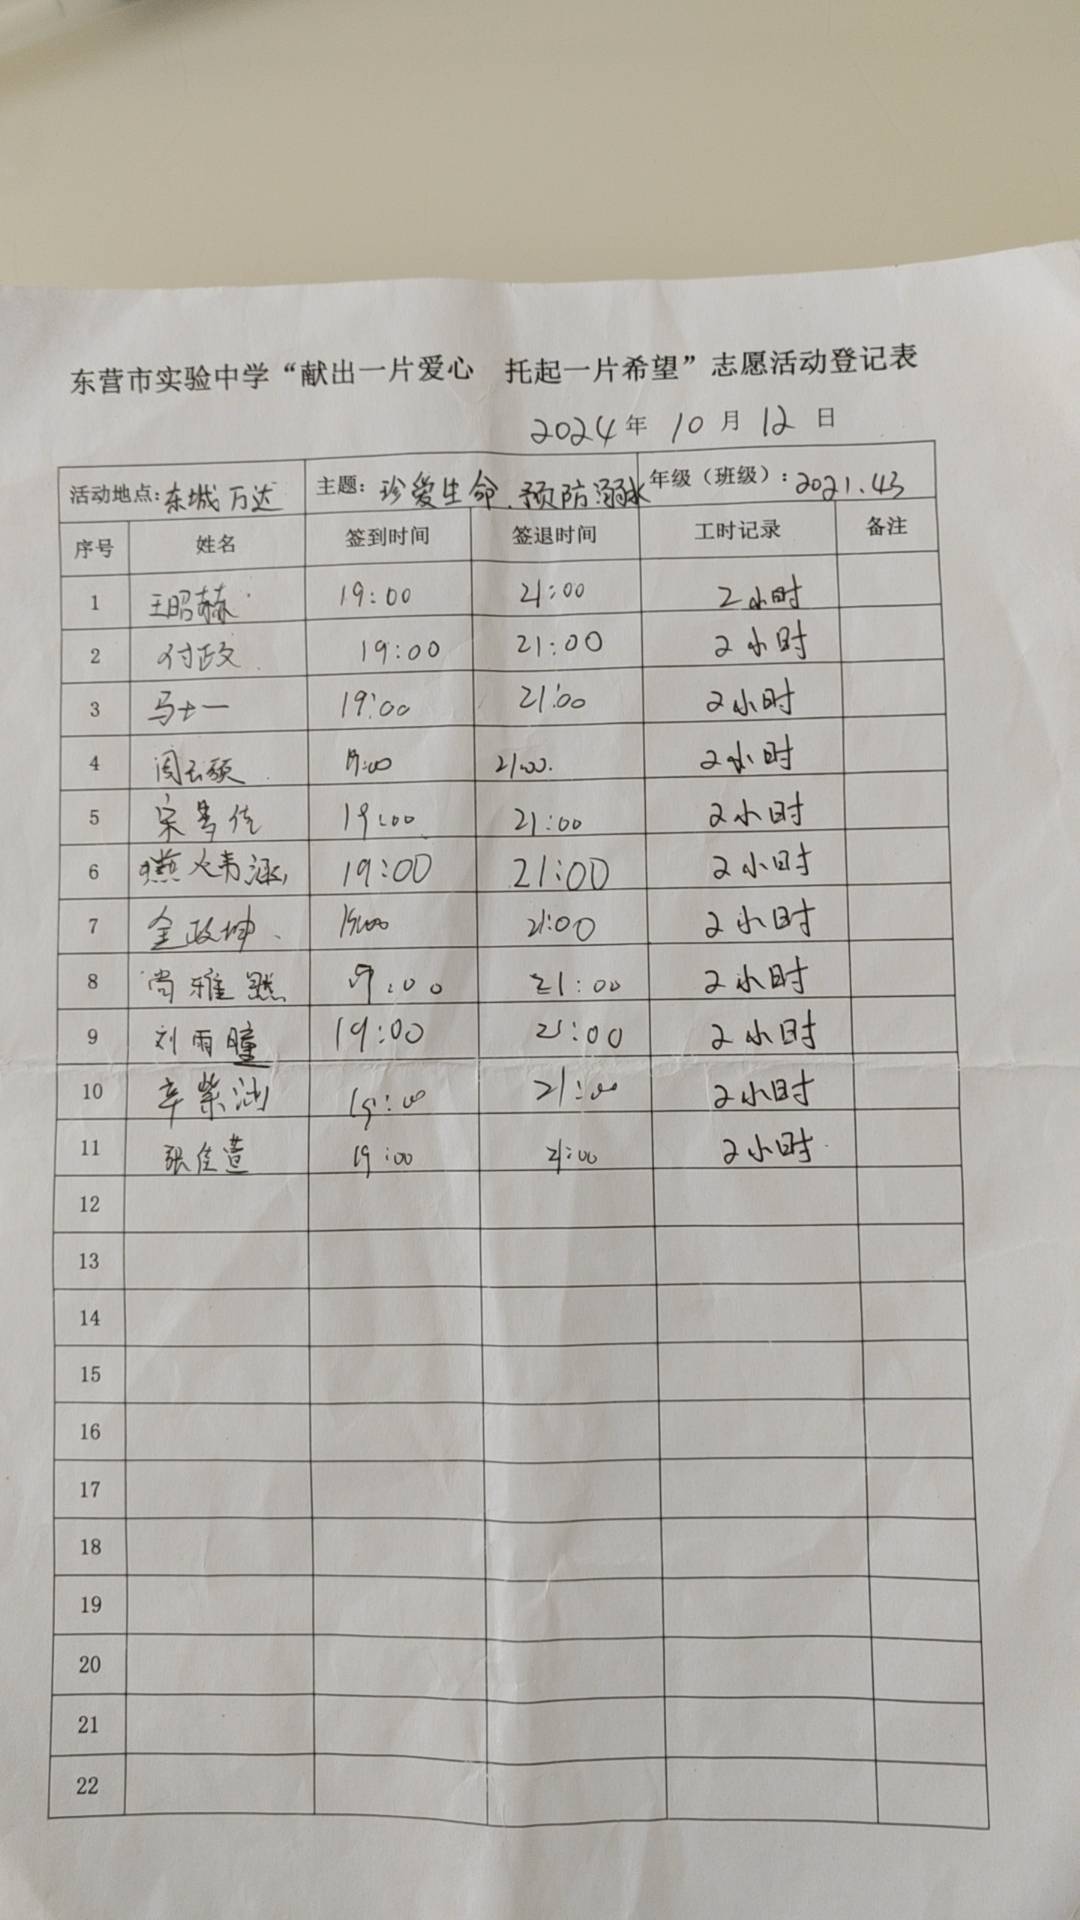 东营市实验中学“献出一片爱心 托起一片希望”志愿活动登记表
2024年 10月 12日
活动地点:东城万达 主题: 珍爱生命.预防溺水 年级（班级）: 2021.43
序号 姓名 签到时间 签退时间 工时记录 备注
1 王昭赫 19:00 21:00 2小时
2 付政 19:00 21:00 2小时
3 马士一 19:00 21:00 2小时
4 19:00 21:00. 2小时
5 宋 佳 19:00 21:00 2小时
6 燕 涵 19:00 21:00 2小时
7 金政坤 19:00 21:00 2小时
8 尚雅 19:00 21:00 2小时
9 刘雨曈 19:00 21:00 2小时
10 辛紫涵 19:00 21:00 2小时
11 张佳萱 19:00 21:00 2小时
12
13
14
15
16
17
18
19
20
21
22